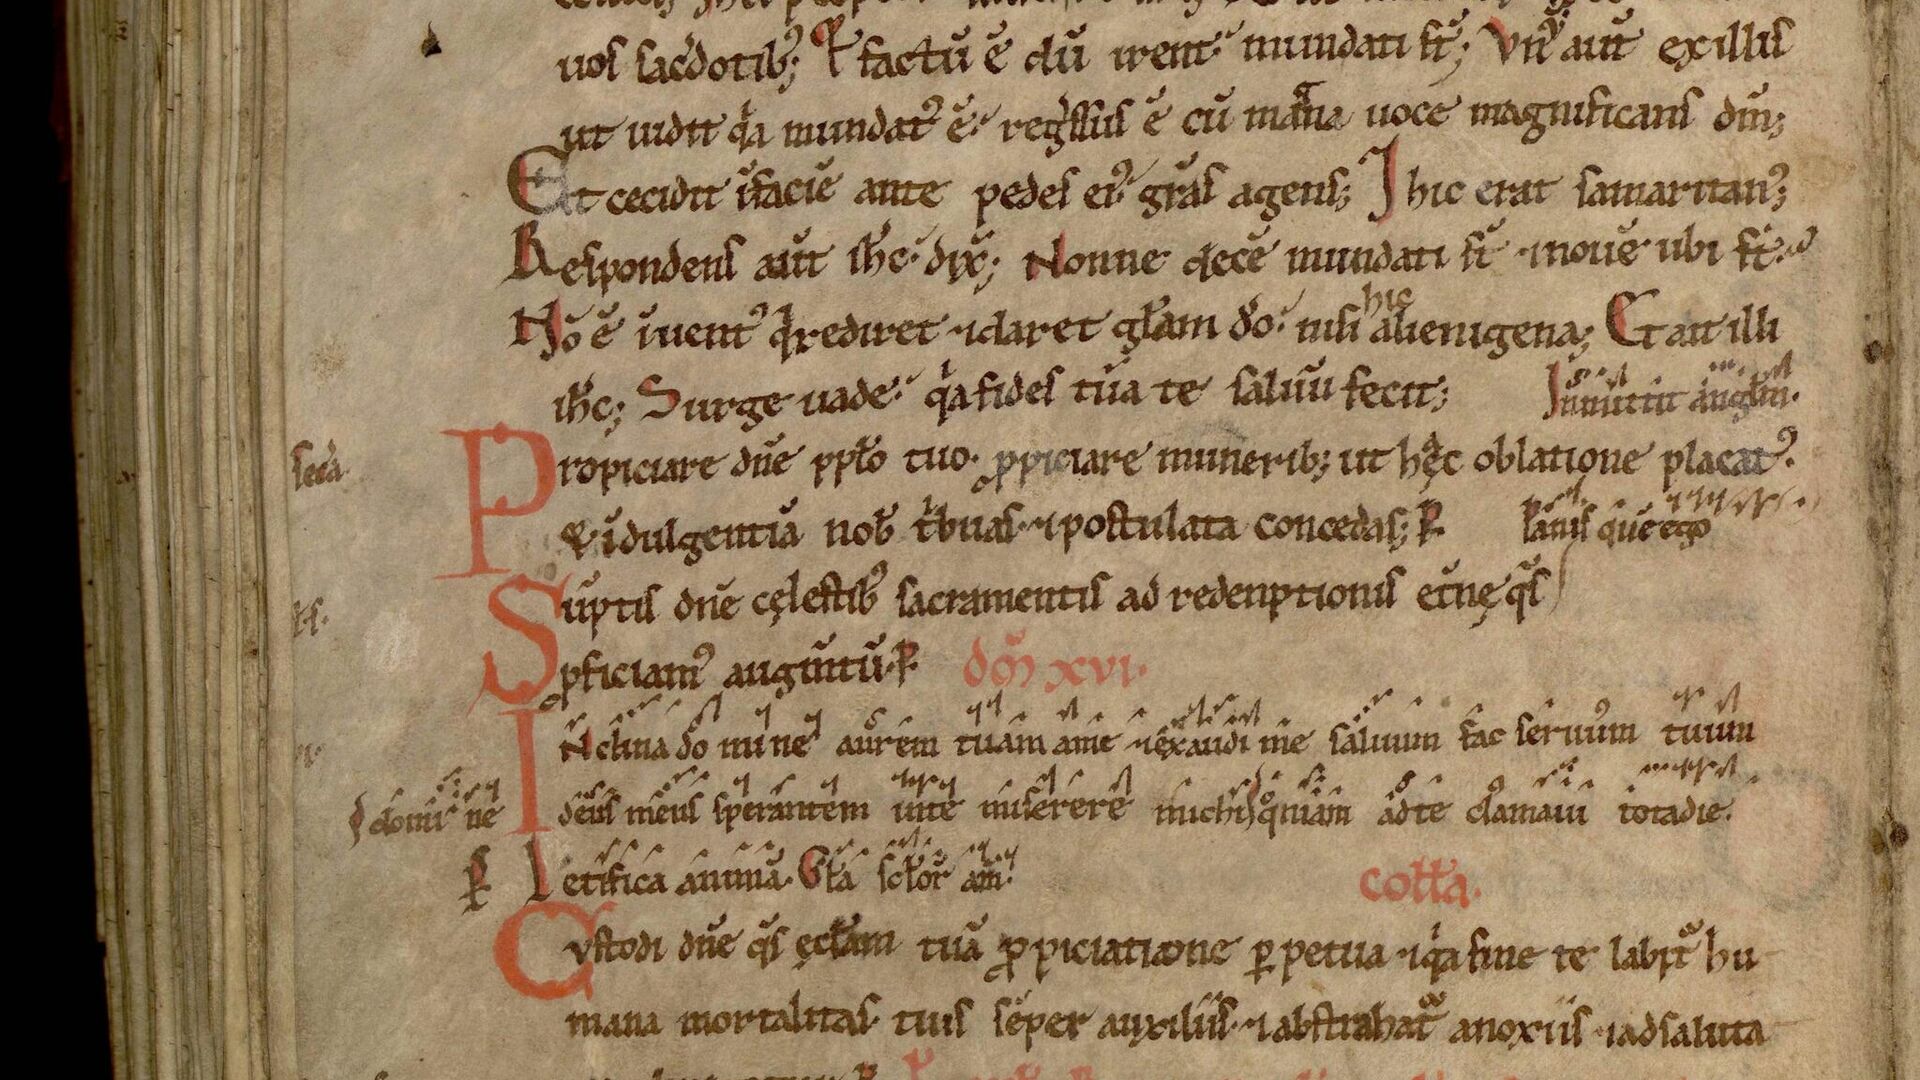 uos sacdotib; Et factū ē dū irent mundati st̄; Vnꝰ aut̄ ex illis
ut uidit q̇a mundatꝰ ē regssus ē cū magna uoce magnificans dm̄;
Et cecidit ī facie ante pedes eiꝰ grās agens; Ihic erat samaritanꝰ;
Respondens aut̄ ihc dix̄; Nonne decē mundati st̄ ⁊ nouē ubi st̄
Nō ē īuentꝰ q̇ rediret ⁊ daret glām dō nisi hic alienigena; Et ait illi
ihc; Surge uade q̇a fides tua te saluū fecit; Inmittit anglm.
secta.
Propiciare dn̄e pplo tuo. ꝓpiciare munerib; ut hęc oblatione placatꝰ.
⁊ īdulgentiā nob tbuas. ⁊ postulata concedas; P. Panis quē ego
Sūptis dn̄e cęlestibꝰ sacramentis ad redenptionis et̄nę qs̄
ꝓficiamꝰ augm̄tū. P. dōm xvi.
INclina do mi ne aurem tuam ad me ⁊ exaudi me saluum fac seruum tuum
deus meus sperantem in te miserere michi domi ne qm̄iam ad te clamaui tota die.
P Letifica animā. Glā sclor am̄. colla.
Custodi dn̄e qs̄ ęcclam tuā ꝓpiciatione perpetua ⁊ q̇a sine te labit hu
mana mortalitas. tuis sēper auxiliis. ⁊ abstrahat a noxiis ⁊ ad saluta